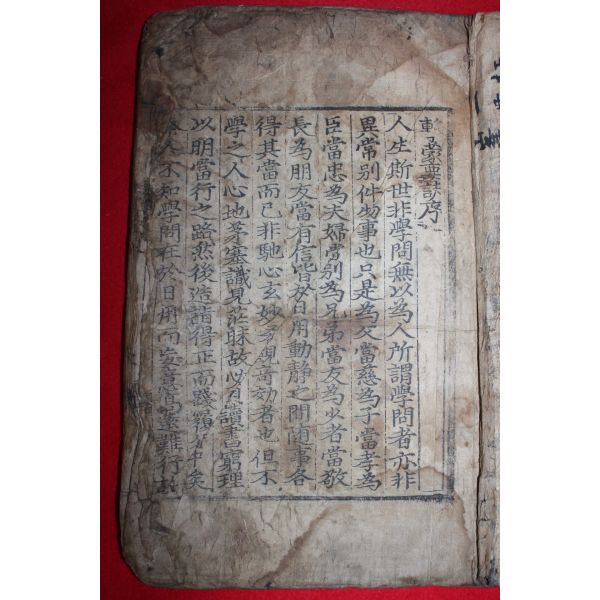 擊蒙要訣序
人生斯世非學問無以為人所謂學問者亦非
異常別件物事也只是為父當慈為子當孝為
臣當忠為夫婦當別為兄弟當友為少者當敬
長為朋友當有信皆於日用動靜之間随事各
得其當而已非馳心玄妙希覬奇效者也但不
學之人心地茅塞識見茫昧故必須讀書窮理
以明當行之路然後造詣得正而踐履得中矣
今人不知學問在於日用而妄意高遠難行故